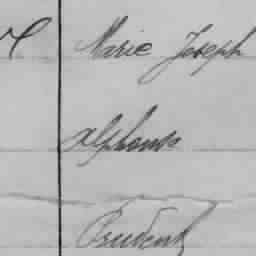 Marie Joseph
Alphonse
Prudent